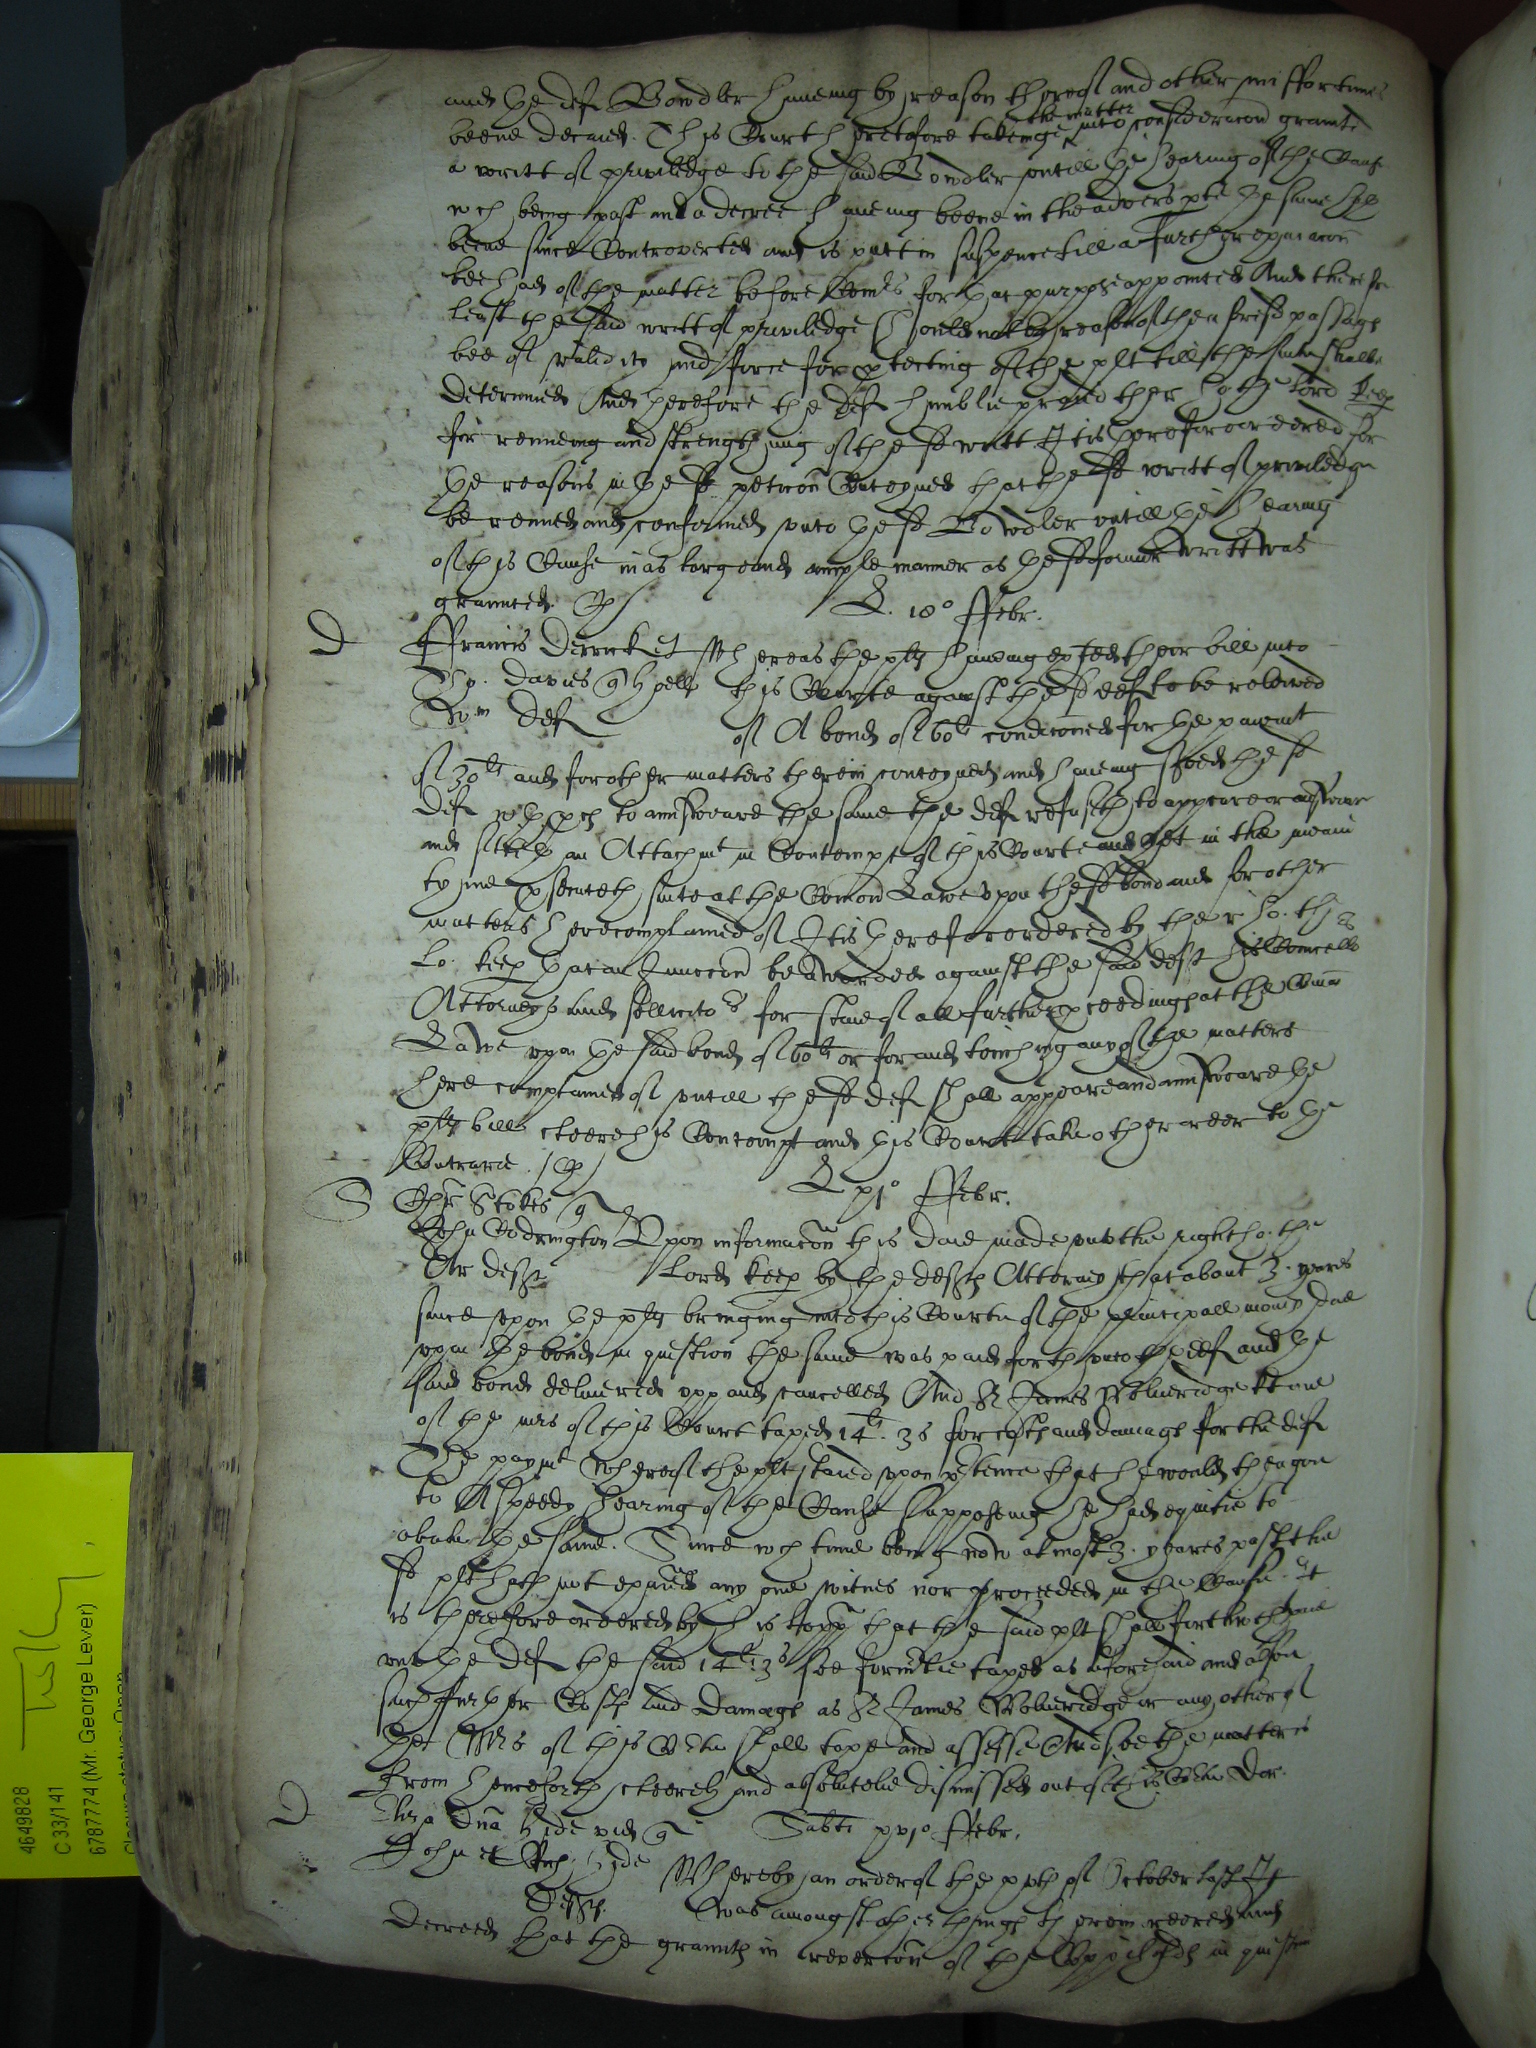 and the deft Bowdler haueing by reason thereof and other misfortunes
beene decaied. This Court heretofore takeinge the matter into consideracon graunted
a writt of priviledge to the said Bowdler vntill the hearing of the Cause
wch being past and a decree haueing beene in the advers pte the same hath
beene since Controverted and is putt in suspence till a further examinacon
bee had of the matter before Comrs for that purpose appointed And therefore
least the said writt of priviledge should not by reason of the aforesd passages
bee of validity and force for ptecting of the plt till the same shalbe
determined And therefore the deft humblie praied the r. ho. the Lord Keep
for renueing and strengthning of the sd writt It is therefore ordered for
the reasons in the sd peticon Conteyned that the sd writt of priviledge
be renued and confirmed vnto the sd Bowdler vntill the hearing
of this Cause in as large and ample manner as the sd former writt was
graunted.
L. 18o Febr.
D
Francis Derrick et Whereas the plts haueing exhited their bill into
Tho. Davies qu this Courte against the sd deft to be releived
deft of A bond of 60li condiconed for the paymt
of 30li and for other matters therein conteyned and haueing served the sd
deft wth pces to answeare the same the deft refuseth to appeare or answeare
and sitteth an Attachmt in Contempt of this Courte and yet in the meane
tyme psecuteth suite at the Comon Lawe vpon the sd bond and for other
matters here complained of It is therefore ordered by the r. ho. the
Lo. Keep that an Iniunccon be awarded against the said deft his Councello
Attorneys and sollicitors for staie of all further pceedings at the Comon
Lawe vpon the said bond of 60li or for and touching any of the matters
here complained of vntill the sd deft shall appeare and answeare the
plts bill cleere his Contempt and this Court take other order to the
Contrarie.
L xxio Febr.
S
Chr Stokes q
John Codrington Vpon informacon this daie made vnto the right ho. the
Ar deft Lord Keep by the defts Attorney that about 3. yeares
since vpon the plts bringing into this Courte of the principall mony due
vpon the bond in question the same was paid forth vnto the deft and the
said bond deliuered vpp and cancelled And Sr James Wolueridge kt one
of the mrs of this Court taxed 14li. 3s for costs and damages for the deft
The paymt whereof the plt staied vpon ptence that he would then goe
to A speedy hearing of the Cause supposeing he had equitie to
abate the same. Since wch time being now almost 3. yeares past the
sd plt hath not exaied any one witnes nor proceeded in the Cause. It
is therefore ordered by his Lopp that the said plt shall forthwth paie
vnto the deft the said 14li. 3s soe formlie taxed as aforesaid and alsoe
such further Costs and Damages as Sr James Wolueridge or any other of
the Mrs of this Court shall taxe and assesse And soe the matter is
from henceforth cleerely and absolutelie dismissed out of this Court
D
Dna Hide vid q
Sabti xxio Febr.
John et Hide Whereby an order of the xxth of October last It
Defts. was amongst other things therein ordered and
decreed that the graunts in revercon of the Coppiholds in question
4649828
C 33/141
6787774 (Mr. George Lever)